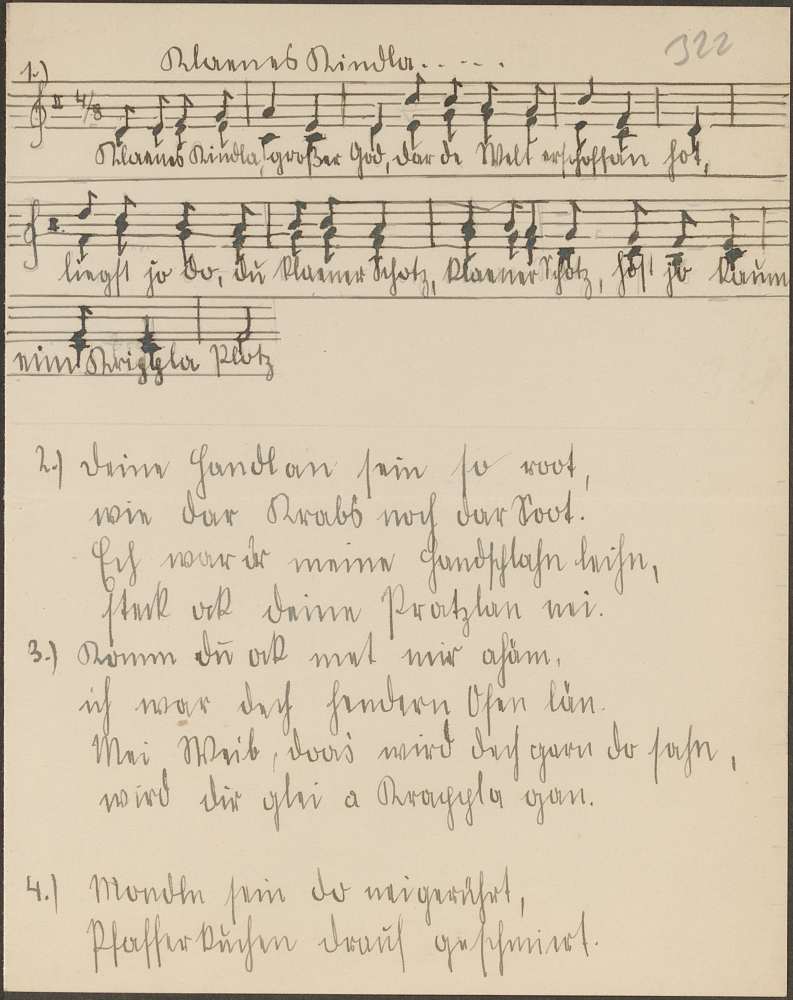 322
Klaenes Kindla.. - - .
1.)
4/8
Klaenes Kindla, großer God, dar de Welt erschoffan hot,
liegst jo do, du klaener Schotz, klaener Schotz, host jo kaum
eim Krippla Plotz
2.) Deine Handlan sein so root,
wie dar Krabs noch dar Soot.
Ech war dr meine Handschlahn leihn,
steck ok deine Pratzlan nei.
3.) Komm du ok met mir ahäm,
ich war dech hendern Ofen län.
Mei Weib, doas wird dech garn do sahn,
wird dir glei a Krappla gan.
4.) Mondln sein do neigerührt,
Pfafferkuchen drauf geschmiert.